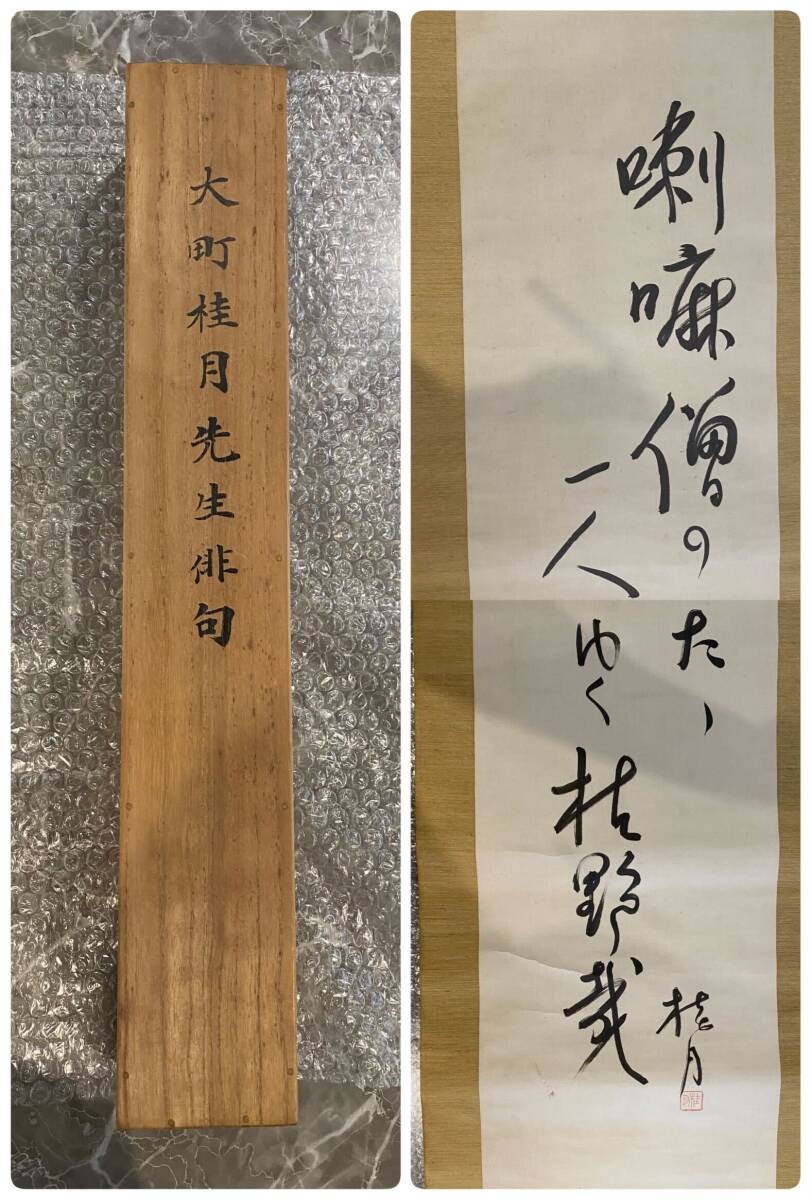 大町桂月先生俳句
喇嘛僧のたゝ
一人ゆく枯野哉
桂月